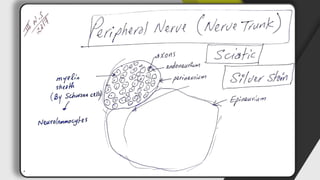 Peripheral Nerve (Nerve Trunk)
Sciatic
Silver Stain
axons
endoneurium
perineurium
myelin
sheath
(By Schwann cells)
Neurolemmocytes
Epineurium